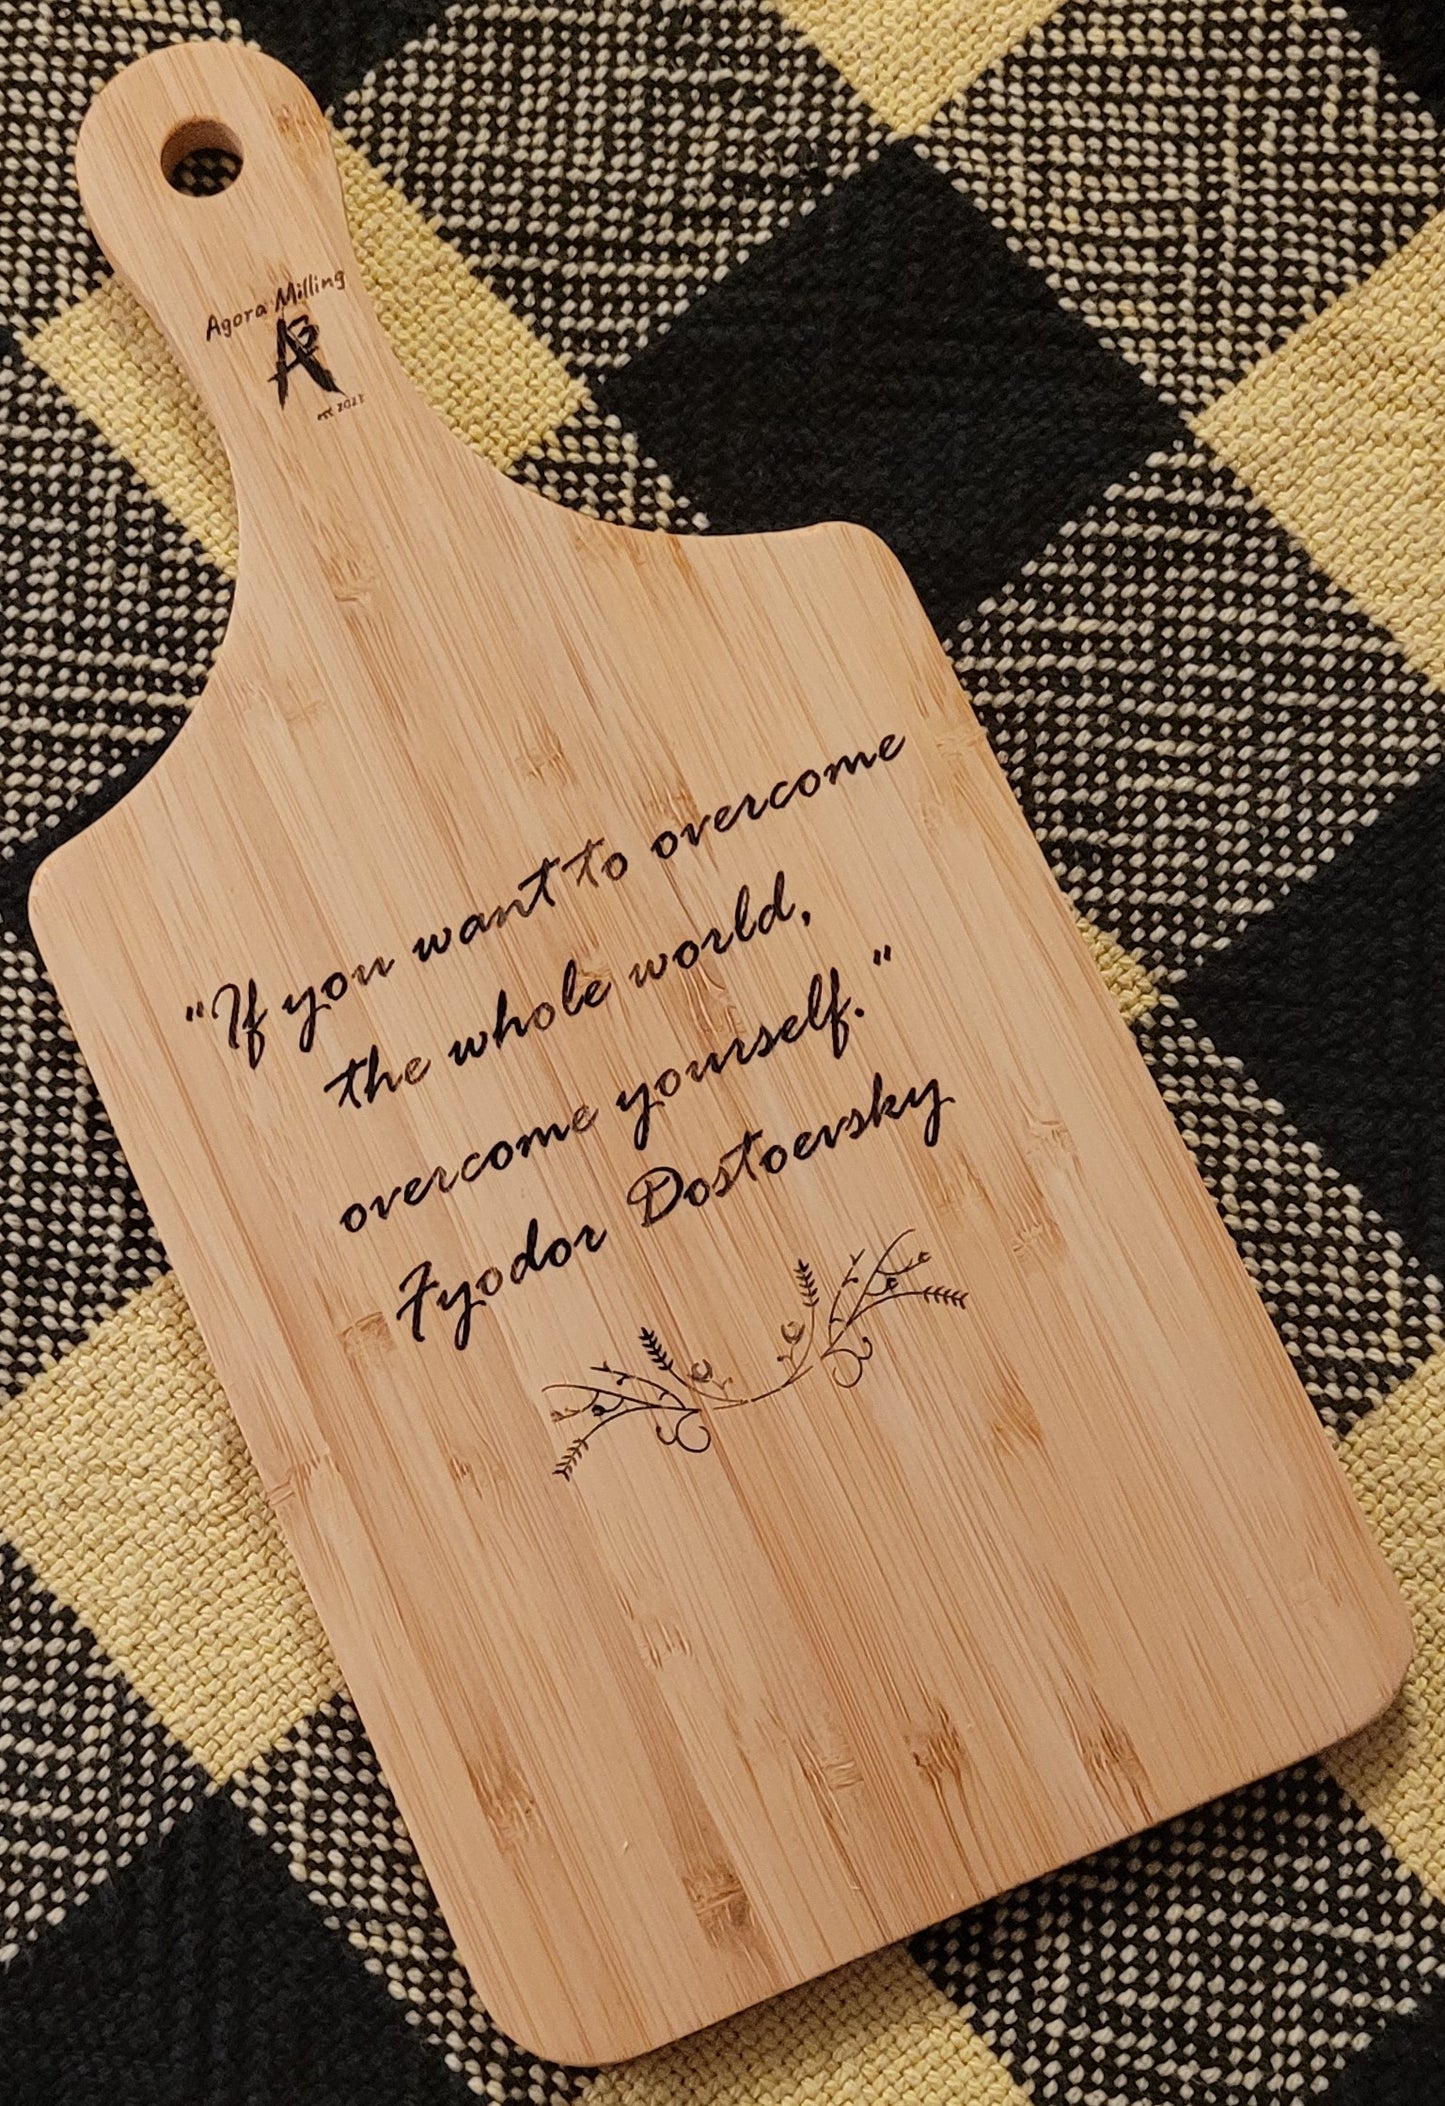 Agora Milling
"If you want to overcome
the whole world,
overcome yourself."
Fyodor Dostoevsky